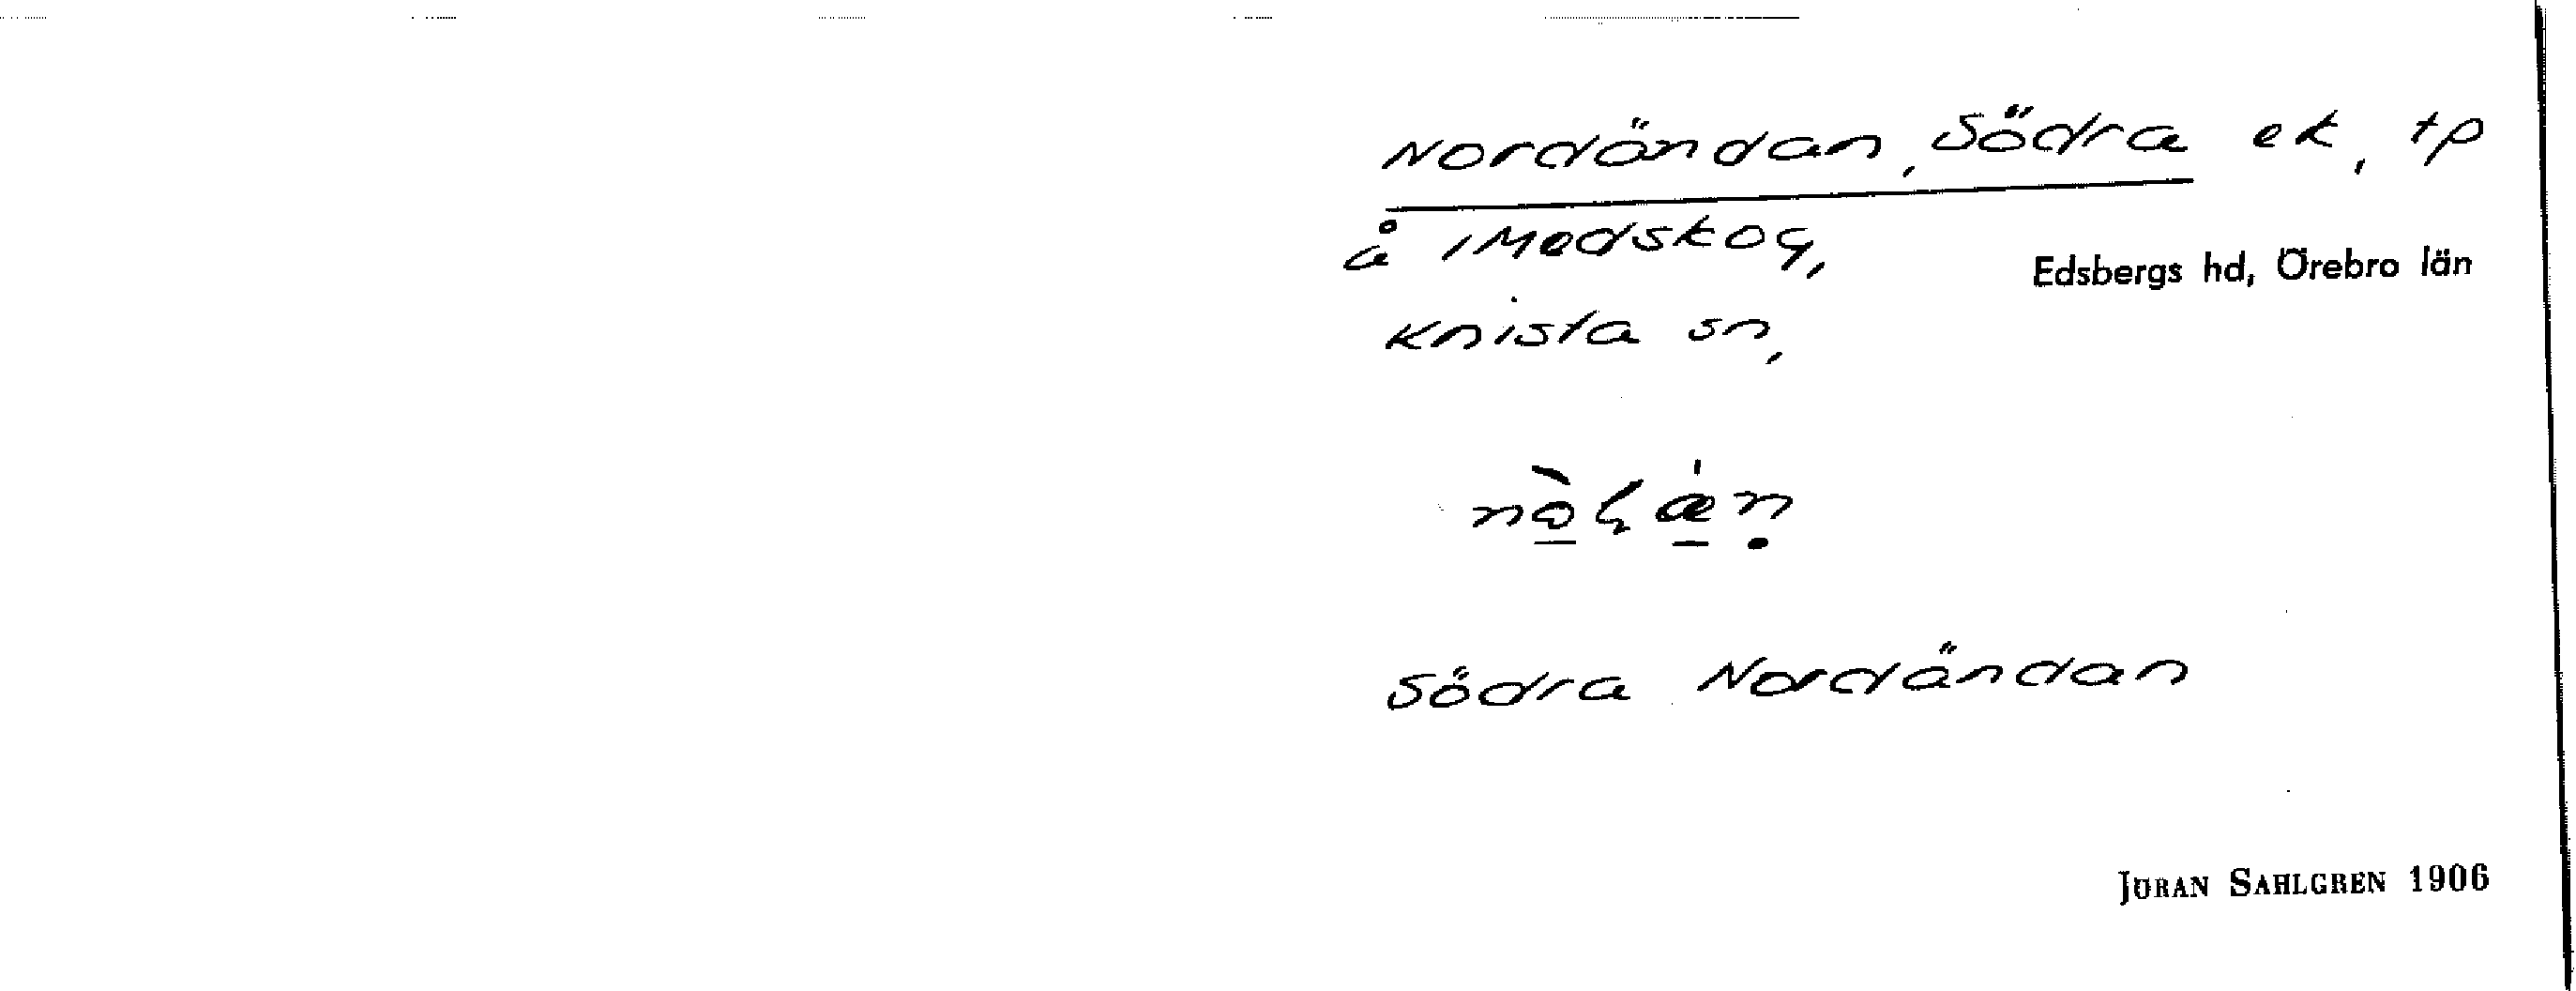 Nordändan, Södra ek, tp
å Medskog,
Edsbergs hd, Örebro län
Knista sn,
Södra Nordändan
JÖRAN SAHLGREN 1906